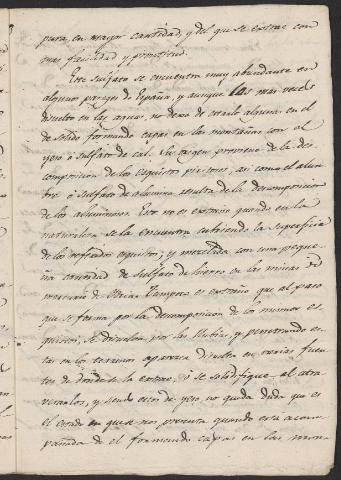 pura, en mayor cantidad, y del que se extrae con
mas facilidad y prontitud.
Este sulfato se encuentra muy abundante en
algunos parages de España, y aunque las mas veces
disuelto en las aguas, no dexa de crearlo alguna en el
de solido formando capas en las montañas con el
yeso ó sulfato de cal. Su origen proviene de la des-
composicion de los esquistos piritosos, asi como el alum-
bre ó sulfato de alumina resulta de la descomposicion
de los aluminosos. Esto no es extraño quando en la
naturaleza se la encuentra cubriendo la superficie
de los referidos esquistos, y mezclada con una peque-
ña cantidad de sulfato de hierro en las minas de
mercurio de Idria. Tampoco es extraño que al paso
que se forma por la descomposicon de los mismos es-
quistos, se disuelva por las lluvias, y penetrando es-
tas en los terrenos aparezca disuelta en varias fuen-
tes de donde se la extrae, ó se solidifique al atra-
vesarlos, y siendo estos de yeso, no queda duda que es
el estado en que se nos presenta quando está acom-
pañada de el formando capas en las mon-